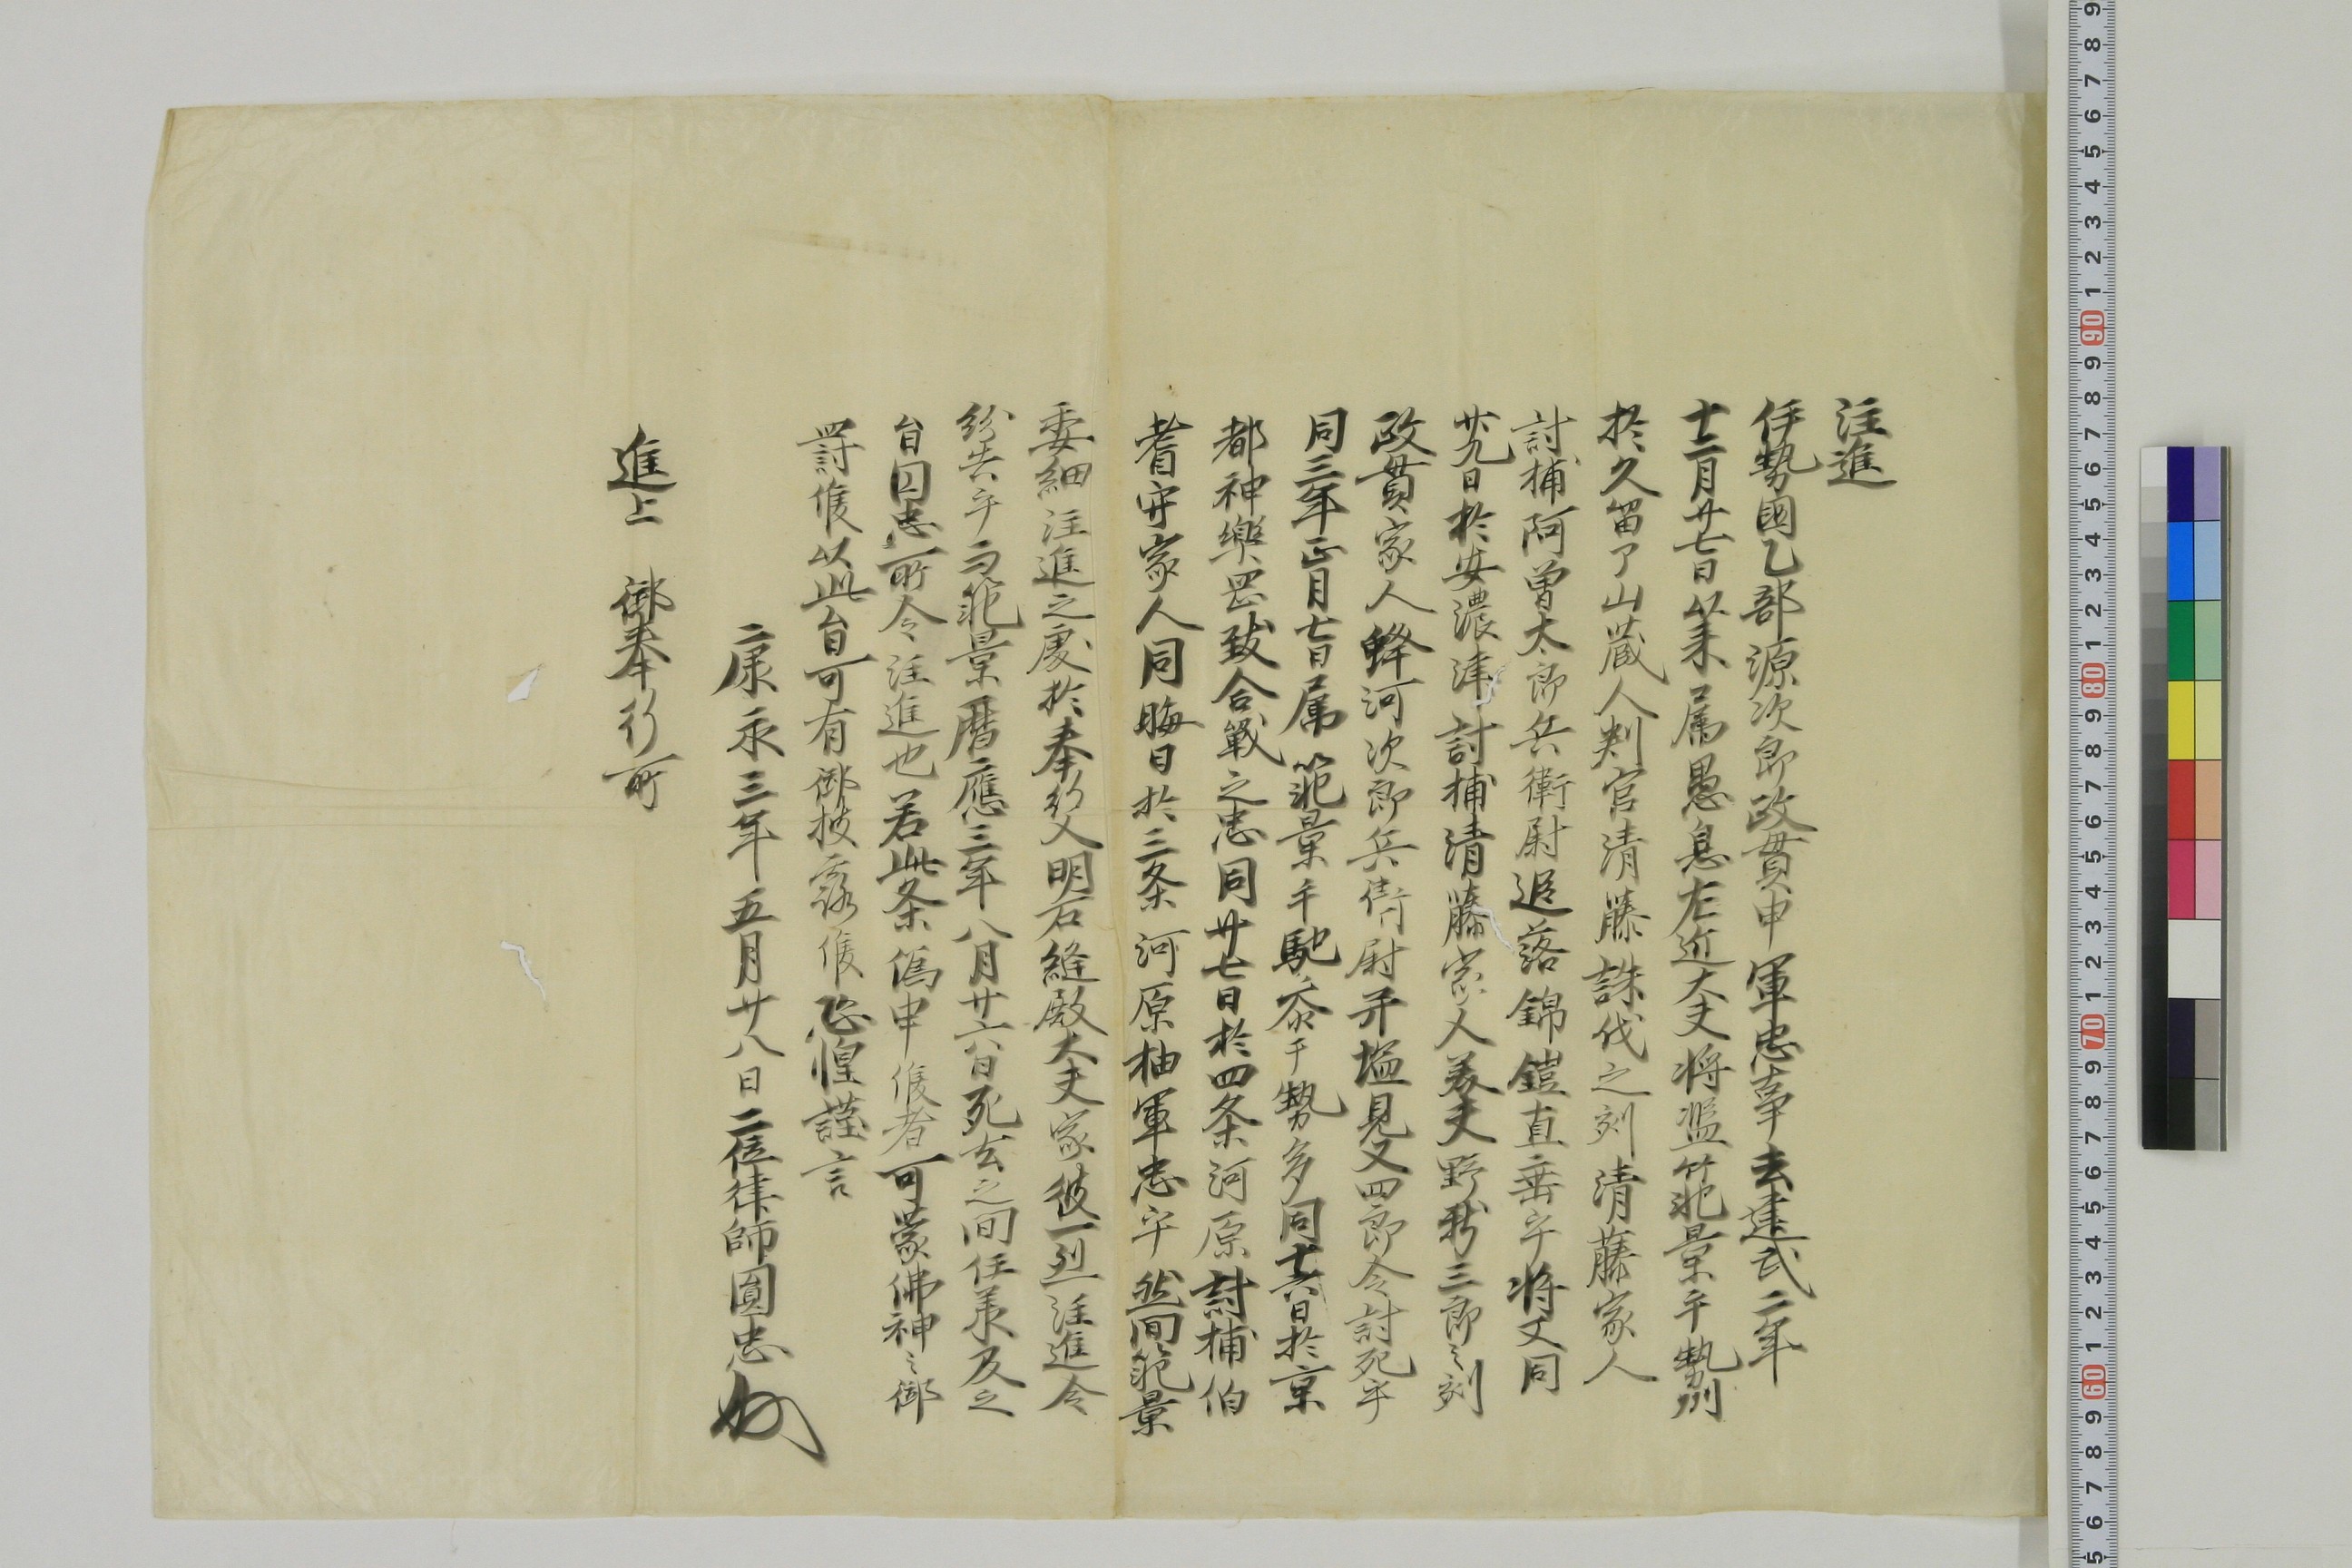 注進
伊勢國乙部源次郎政貫申軍忠事去建武二年
十二月廿七日以来属愚息左近大夫将監範景手勢州
於久留了山蔵人判官清藤誅伐之刻清藤家人
討捕阿曽太郎兵衛尉追落錦鎧直垂乎将又同
廿九日於安濃津討捕清藤家人美夫野新三郎之刻
政貫家人蜂河次郎兵衛尉并塩見又四郎令討死乎
同三年正月七日属範景手馳参于勢多同十六日於京
都神樂岡致合戦之忠同廿七日於四条河原討捕伯
耆守家人同晦日於三条河原抽軍忠乎然間範景
委細注進之處於奉行人明石縫殿大夫家彼一烈注進令
紛失乎而範景暦應三年八月廿六日死去之間任承及之
旨囚忠所令注進也若此条偽申候者可蒙佛神之御
罸候以此旨可有御披露候恐惶謹言
康永三年五月廿八日二位律師圓忠
進上 御奉行所
60
70
80
90